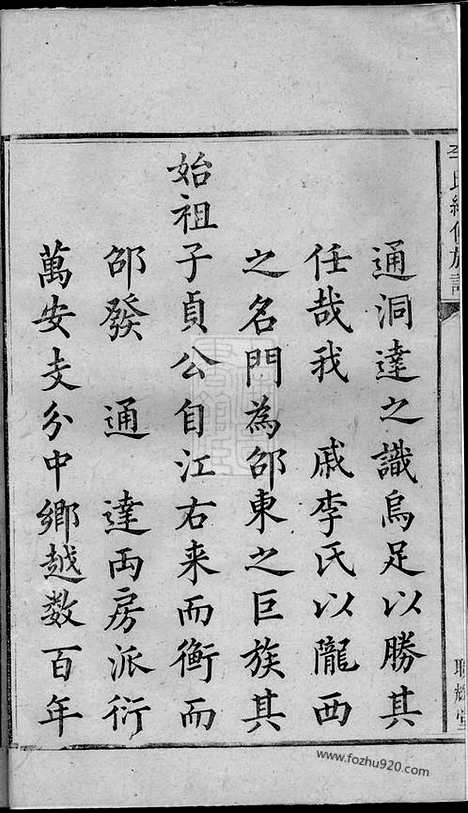 李氏續修族譜
通洞達之識烏足以勝其
任哉我 戚李氏以隴西
之名門為邵東之巨族其
始祖子貞公自江右来而衡而
邵發 通 達両房派衍
萬安支分中鄉越数百年
聯輝堂
www.fozhu920.com